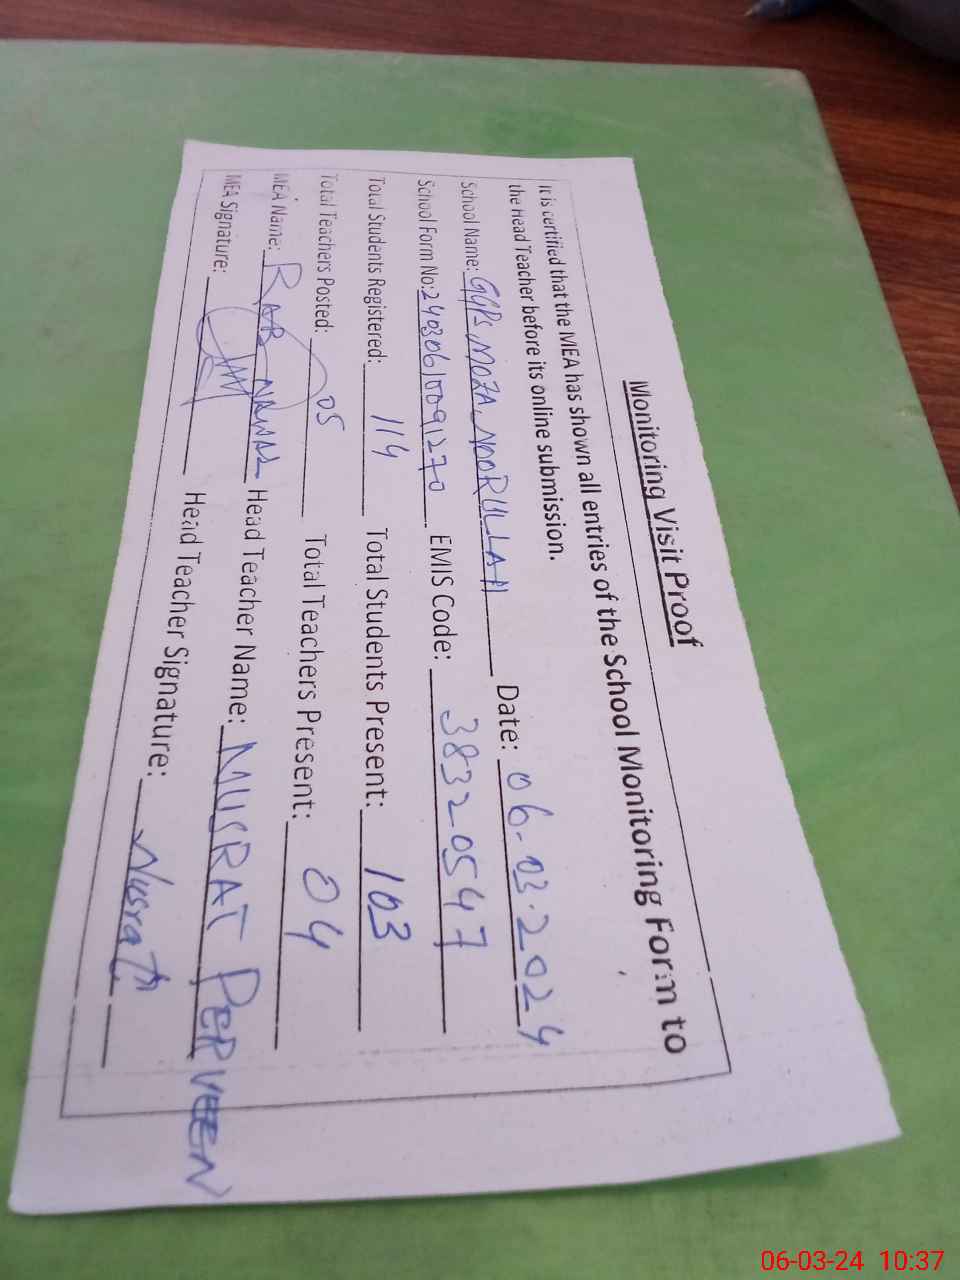 Monitoring Visit Proof
It is certified that the MEA has shown all entries of the School Monitoring Form to
the Head Teacher before its online submission.
School Name: GGPS MOZA NOORULLAH Date: 06.03.2024
School Form No: 24030610091270 EMIS Code: 38320547
Total Students Registered: 114 Total Students Present: 103
Total Teachers Posted: 05 Total Teachers Present: 04
MEA Name: RAB NAWAZ Head Teacher Name: NUSRAT PERVEEN
MEA Signature: Head Teacher Signature: Nusrat
06-03-24 10:37